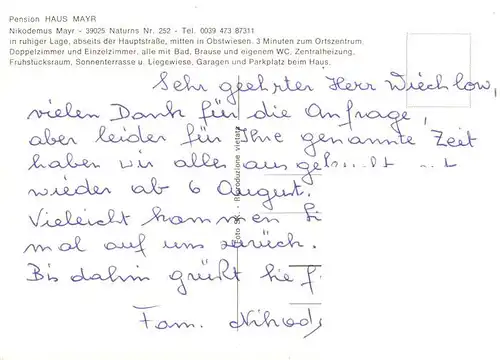 Pension HAUS MAYR
Nikodemus Mayr - 39025 Naturns Nr. 252 - Tel. 0039 473 87311
in ruhiger Lage, abseits der Hauptstraße, mitten in Obstwiesen. 3 Minuten zum Ortszentrum.
Doppelzimmer und Einzelzimmer, alle mit Bad, Brause und eigenem WC, Zentralheizung,
Frühstücksraum, Sonnenterrasse u. Liegewiese, Garagen und Parkplatz beim Haus.
Sehr geehrter Herr Wiechlow,
vielen Dank für die Anfrage,
aber leider für Ihre genannte Zeit
haben wir alles
wieder ab 6 August.
Vieleicht kommen Si
mal auf uns zurück.
Bis dahin grüßt Sie f.
Fam. Nikod
Foto SK. - Riproduzione vietata